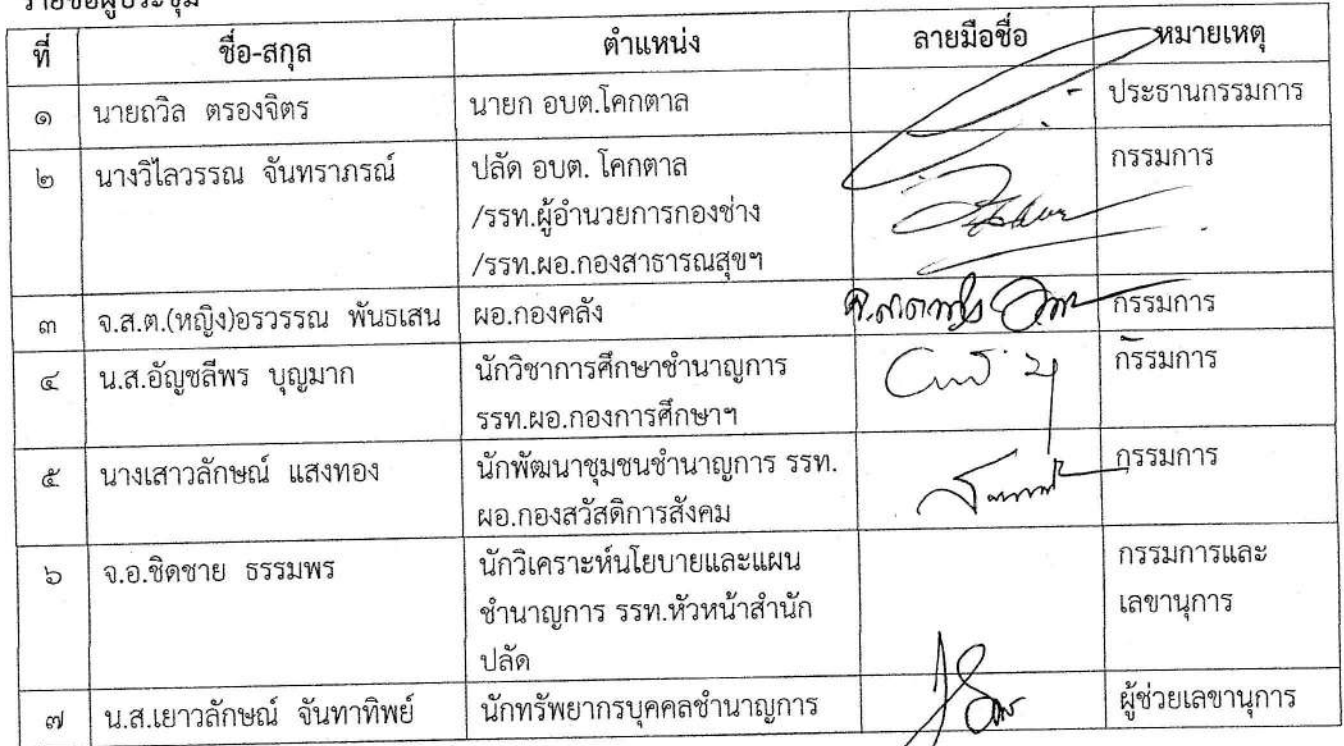 รายชื่อผู้ประชุม
ที่ ชื่อ-สกุล ตำแหน่ง ลายมือชื่อ หมายเหตุ
๑ นายถวิล ตรองจิตร นายก อบต.โคกตาล ประธานกรรมการ
๒ นางวิไลวรรณ จันทราภรณ์ ปลัด อบต. โคกตาล กรรมการ
/รรท.ผู้อำนวยการกองช่าง
/รรท.ผอ.กองสาธารณสุขฯ
๓ จ.ส.ต.(หญิง)อรวรรณ พันธเสน ผอ.กองคลัง กรรมการ
๔ น.ส.อัญชลีพร บุญมาก นักวิชาการศึกษาชำนาญการ กรรมการ
รรท.ผอ.กองการศึกษาฯ
๕ นางเสาวลักษณ์ แสงทอง นักพัฒนาชุมชนชำนาญการ รรท. กรรมการ
ผอ.กองสวัสดิการสังคม
๖ จ.อ.ชิดชาย ธรรมพร นักวิเคราะห์นโยบายและแผน กรรมการและ
ชำนาญการ รรท.หัวหน้าสำนัก เลขานุการ
ปลัด
๗ น.ส.เยาวลักษณ์ จันทาทิพย์ นักทรัพยากรบุคคลชำนาญการ ผู้ช่วยเลขานุการ